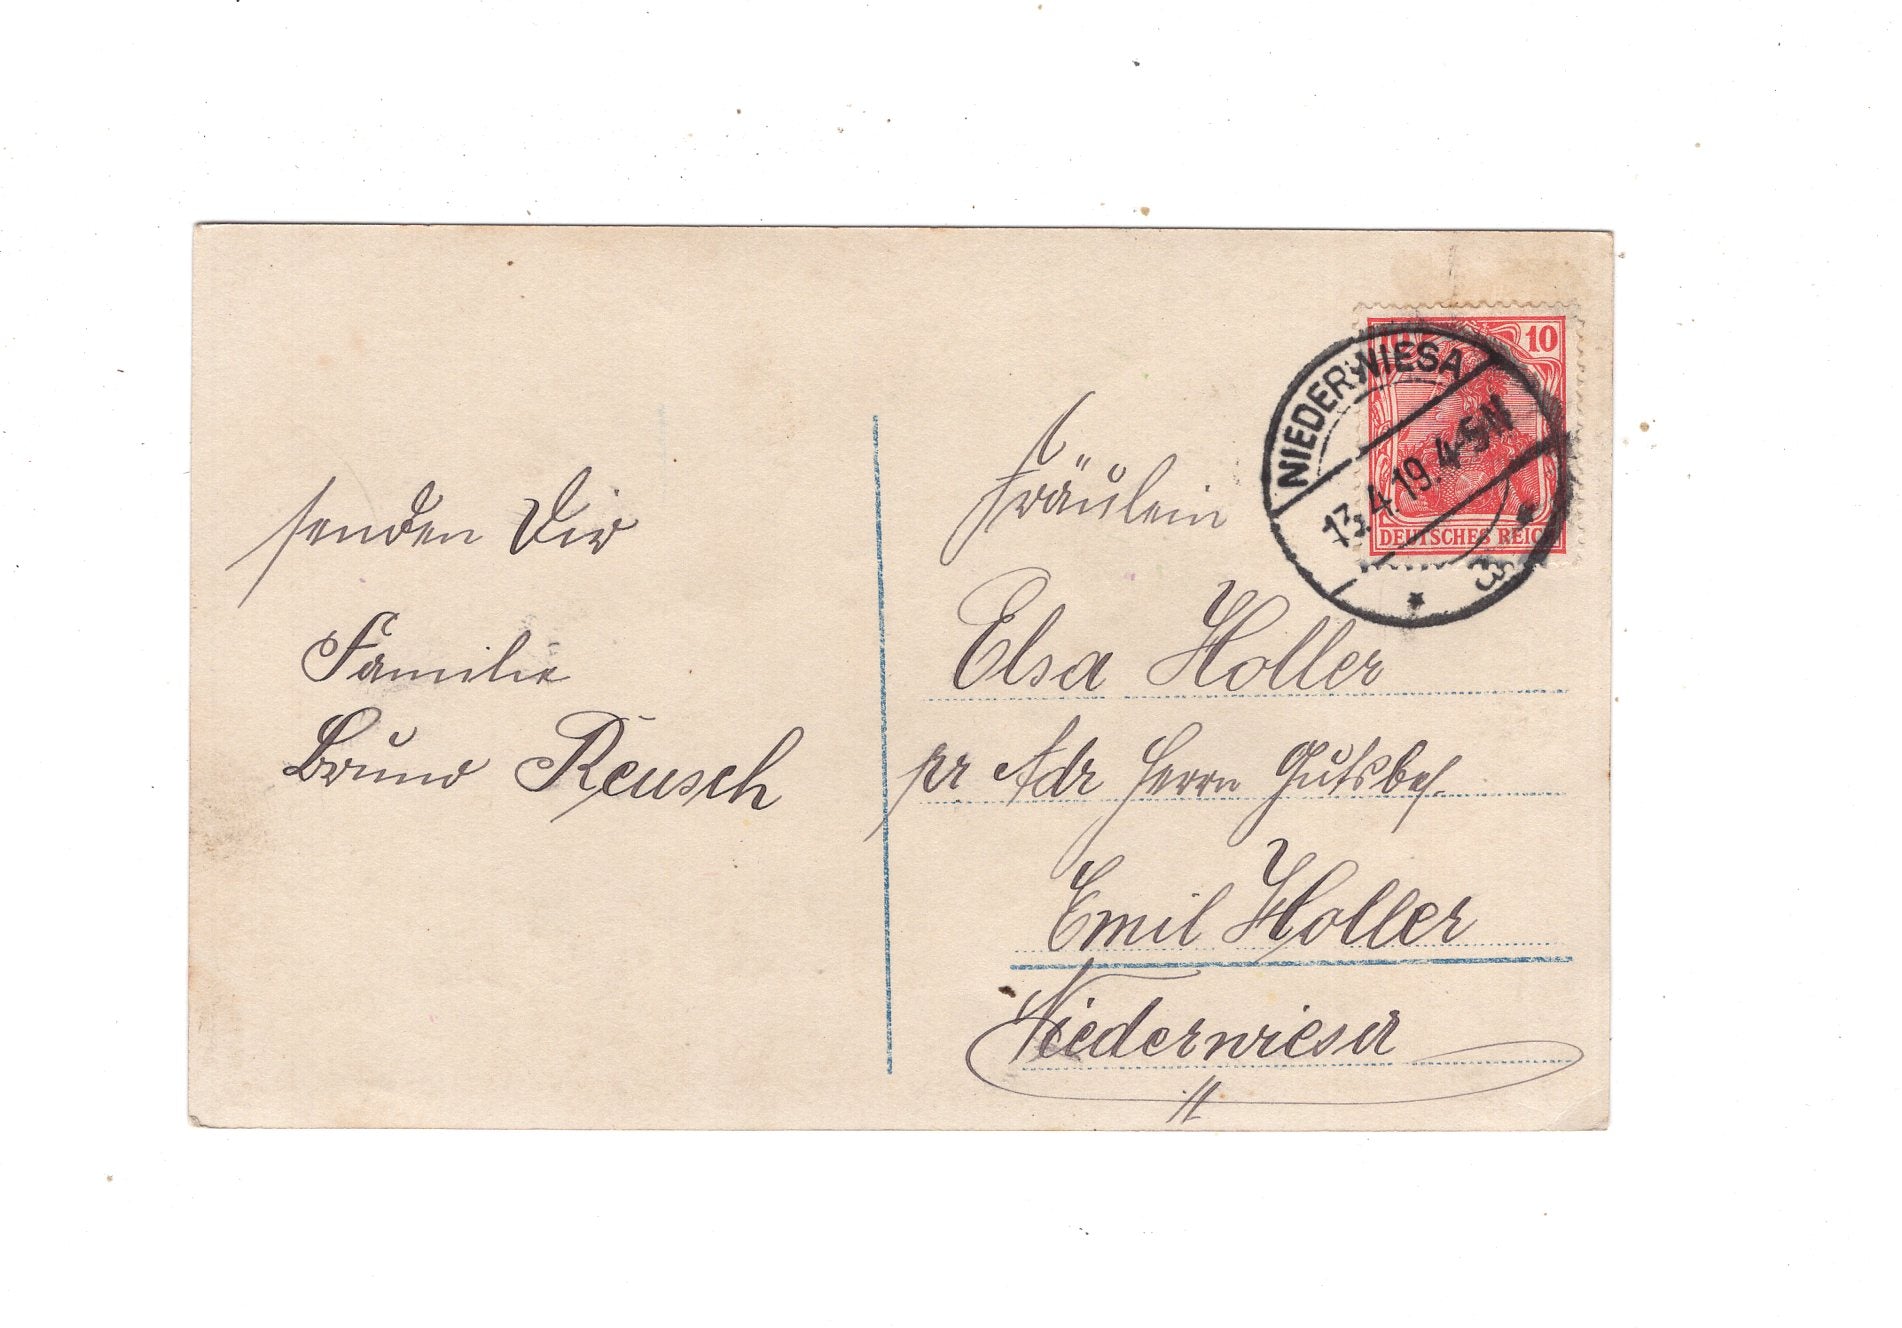 senden Dir
Familie
Bruno Reusch
10
DEUTSCHES REICH
NIEDERWIESA
13.4.19. 4-5N
Fräulein
Elsa Holler
pr Adr Herrn Gutsbes.
Emil Holler
Niederwiesa